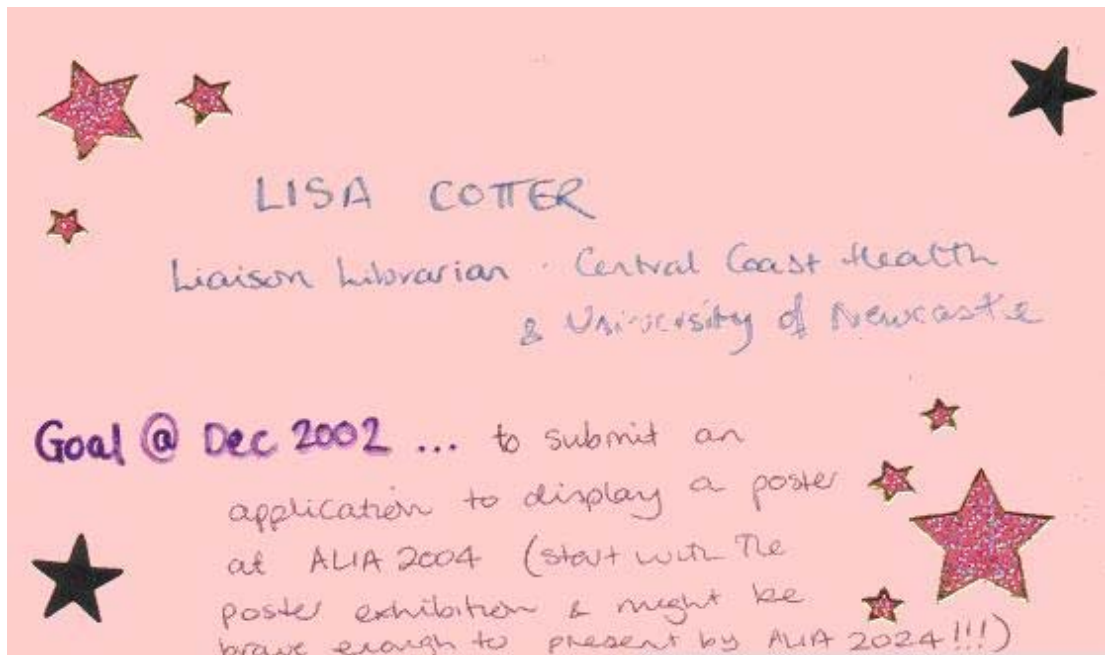 LISA COTTER
Liaison Librarian · Central Coast Health
& University of Newcastle
Goal @ Dec 2002 ... to submit an
application to display a poster
at ALIA 2004 (start with the
poster exhibition & might be
brave enough to present by ALIA 2024!!!)